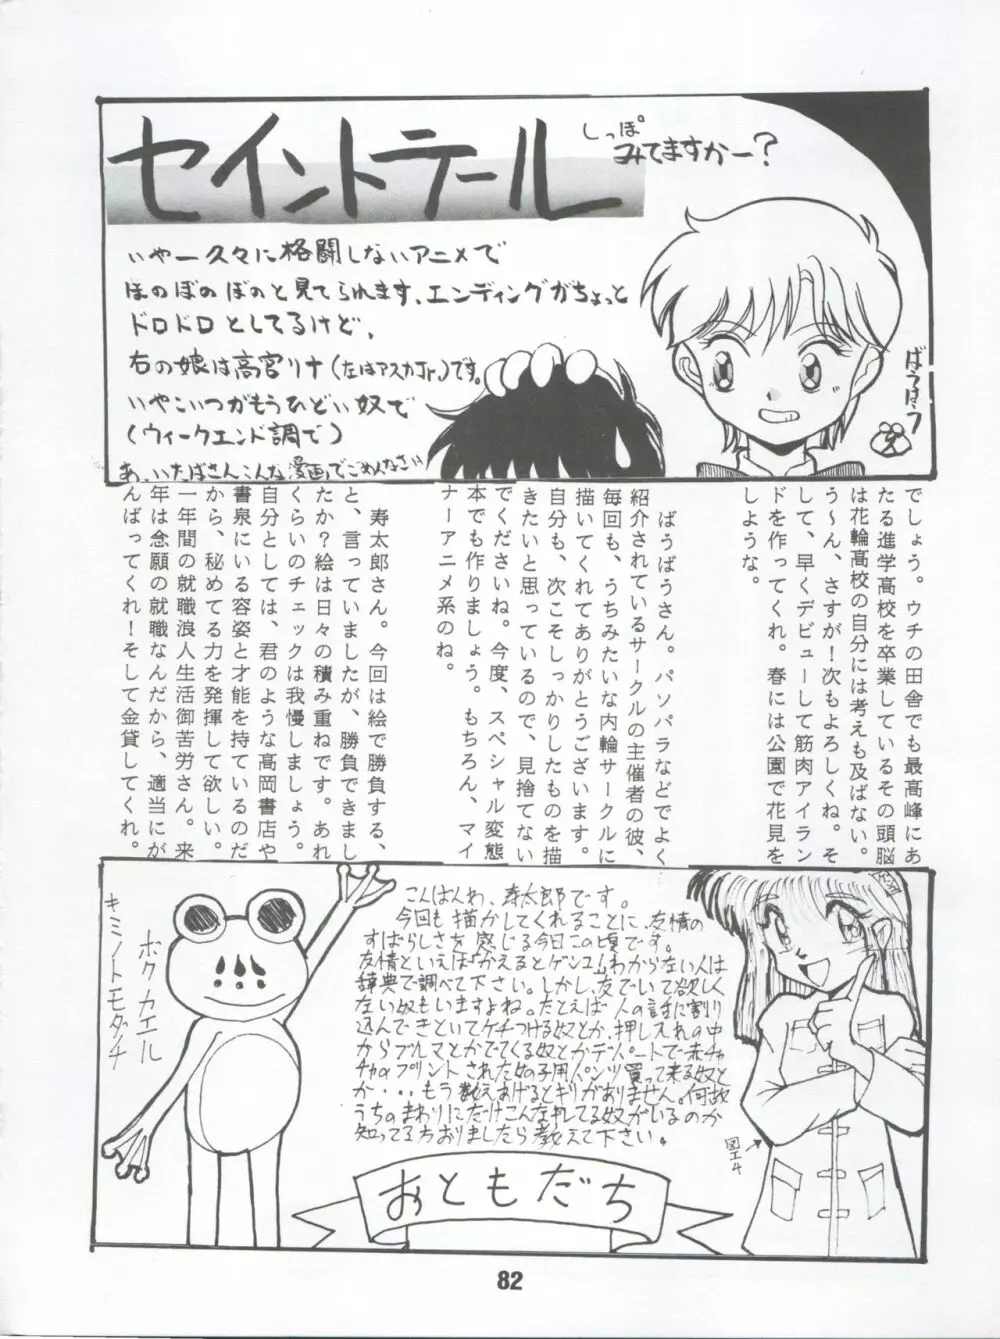 セイントテール
しっぽ
みてますかー?
いやー久々に格闘しないアニメで
ほのぼのぼのと見てられます、エンディングがちょっと
ドロドロとしてるけど、
右の娘は高宮リナ(左はアスカJr.)です。
いやこいつがもうひどい奴で
(ウィークエンド調で)
あ、いたばさんこんな漫画でごめんなさい
ばうばう
でしょう。ウチの田舎でも最高峰にあ
たる進学高校を卒業しているその頭脳
は花輪高校の自分には考えも及ばない。
う〜ん、さすが!次もよろしくね。そ
して、早くデビューして筋肉アイラン
ドを作ってくれ。春には公園で花見を
しような。
ばうばうさん。パソパラなどでよく
紹介されているサークルの主催者の彼、
毎回も、うちみたいな内輪サークルに
描いてくれてありがとうございます。
自分も、次こそしっかりしたものを描
きたいと思っているので、見捨てない
でくださいね。今度、スペシャル変態
本でも作りましょう。もちろん、マイ
ナーアニメ系のね。
寿太郎さん。今回は絵で勝負する、
と、言っていましたが、勝負できまし
たか?絵は日々の積み重ねです。あれ
くらいのチェックは我慢しましょう。
自分としては、君のような高岡書店や
書泉にいる容姿と才能を持ているのだ
から、秘めてる力を発揮して欲しい。
一年間の就職浪人生活御苦労さん。来
年は念願の就職なんだから、適当にが
んばってくれ!そして金貸してくれ。
こんばんわ、寿太郎です。
今回も描かしてくれることに、友情の
すばらしさを感じる今日この頃です。
友情といえば「かえるとゲンユ」わからない人は
辞典で調べて下さい。しかし、友でいて欲しく
ない奴もいますよね。たとえば人の話に割り
込んできといてケチつける奴とか、押し入れの中
からブルマとかでてくる奴とかデパートで赤チャ
チャのプリントされた女の子用パンツ買って来る奴と
か・・・もう数えあげるとキリがありません。何故
うちのまわりにだけこんなイカレてる奴がいるのか
知ってる方おりましたら教えて下さい。
ボクカエル
キミノトモダッチ
図エ4
おともだち
82